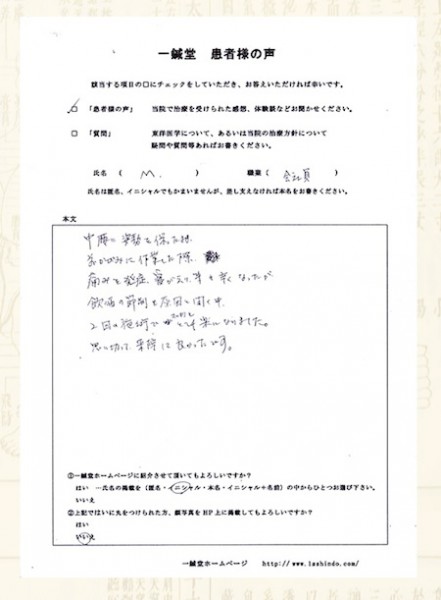 一鍼堂 患者様の声
該当する項目の口にチェックをしていただき、お答えいただければ幸いです。
□ 「患者様の声」 当院で治療を受けられた感想、体験談などお聞かせください。
□ 「質問」 東洋医学について、あるいは当院の治療方針について
疑問や質問等あればお書きください。
氏名 ( M. ) 職業 ( 会社員 )
氏名は匿名、イニシャルでもかまいませんが、差し支えなければ本名をお書きください。
本文
中腰に姿勢を保った時、
前かがみに作業した際、
痛みを発症、寝がえり
飲酒の節制を
2回の施術で とても楽になりました。
思い切って来院して良かったです。
①一鍼堂ホームページに紹介させて頂いてもよろしいですか？
はい ―氏名の掲載を（匿名・イニシャル・本名・イニシャル＋名前）の中からひとつお選び下さい。
いいえ
②上記ではいに丸をつけられた方、顔写真をHP上に掲載してもよろしいですか？
はい
いいえ
一鍼堂ホームページ http://www.1sshindo.com/